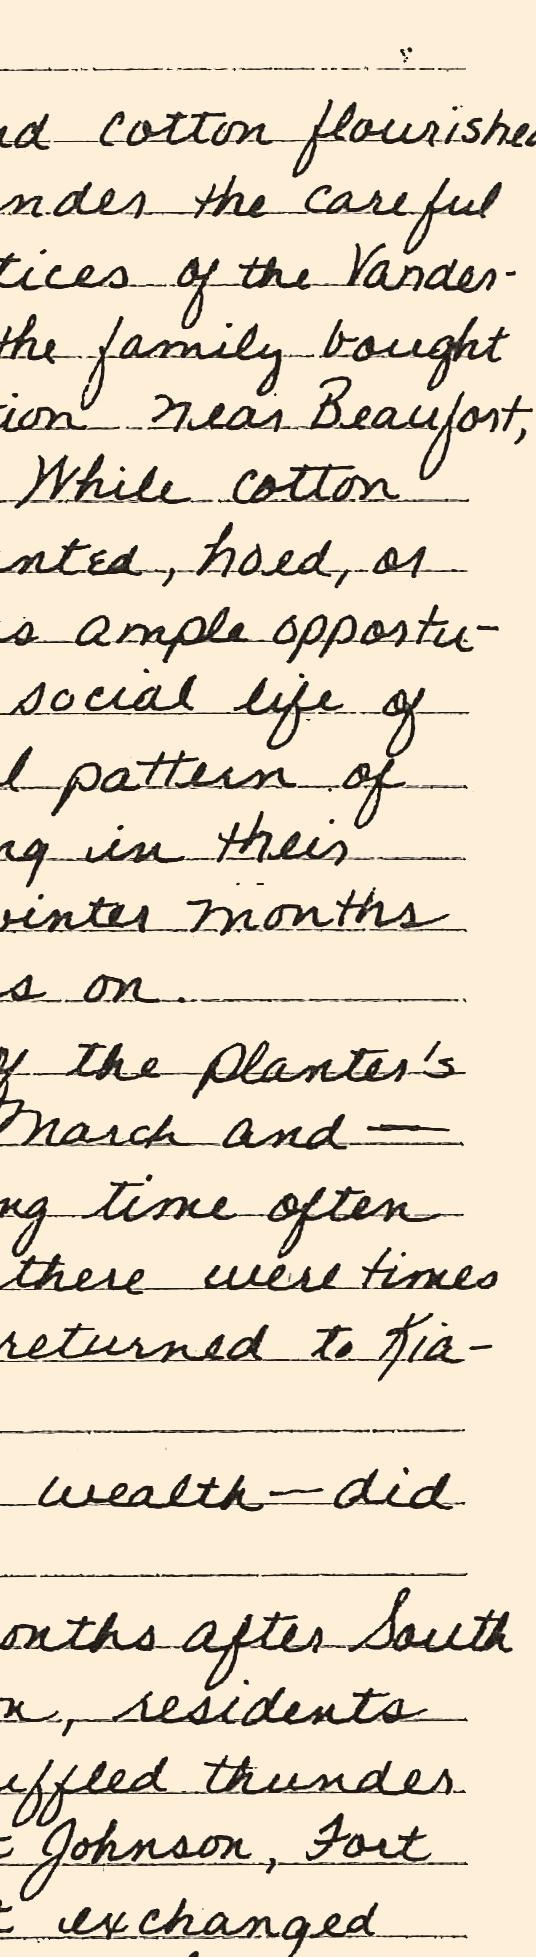 nd cotton flourished
nder the careful
tices of the Vander-
the family bought
ion near Beaufort,
While cotton
nted, hoed, or
s ample opportu-
social life of
l pattern of
ng in their
winter months
s on.
y the planter's
March and —
ng time often
there were times
returned to Kia-
wealth — did
onths after South
n, residents
uffled thunder
t Johnson, Fort
t exchanged